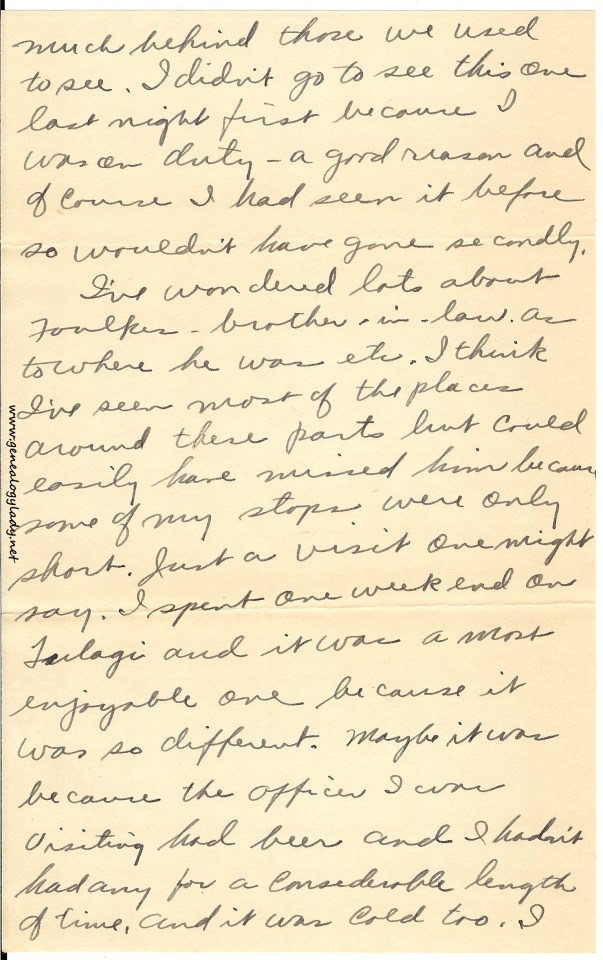 much behind those we used
to see. I didn't go to see this one
last night first because I
was on duty - a good reason and
of course I had seen it before
so wouldn't have gone secondly.
I've wondered lots about
Foulkes - brother-in-law. as
to where he was etc. I think
I've seen most of the places
around these parts but could
easily have missed him because
some of my stops were only
short. Just a visit one might
say. I spent one week end on
Tulagi and it was a most
enjoyable one because it
was so different. Maybe it was
because the officer I was
visiting had beer and I hadn't
had any for a considerable length
of time, and it was cold too. I
www.genealogylady.net